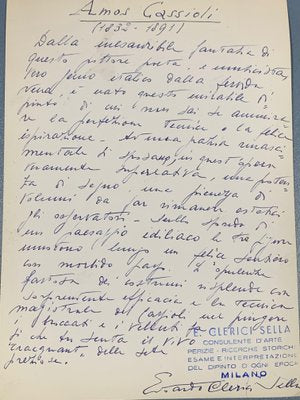 Amos Cassioli
(1832 - 1891)
Dalla inesauribile fantasia di
questo pittore poeta e umanista,
vero genio italico dalla fervida
vena, è nato questo mirabile di
pinto di cui non sai se ammira
re la perfezione tecnica o la felice
ispirazione. rinasci
mentale di in quest'opera
veramente superlativa, una poten
za di sogno, una pienezza di
volumi da far rimanere estatici
gli osservatori. Sullo sfondo di
un paesaggio idilliaco le tre figure
muovono lungo un felice sentiero
con morbido passo. L'opulenza
fastosa dei costumi risplende con
sorprendente efficacia e la tecnica
magistrale del Cassioli nel pingere
i broccati e i velluti è
di che sa il vivo
delle sete
preziose.
E. CLERICI-SELLA
CONSULENTE D'ARTE
PERIZIE - RICERCHE STORICHE
ESAME E INTERPRETAZIONE
DEL DIPINTO D'OGNI EPOCA
MILANO
Clerici Sella